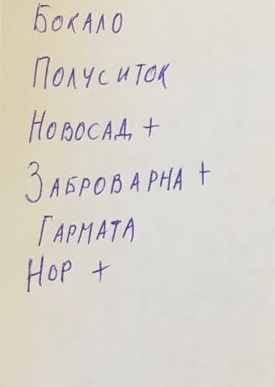 Бокало
Полуситок
Новосад +
Заброварна +
Гармата
Нор +